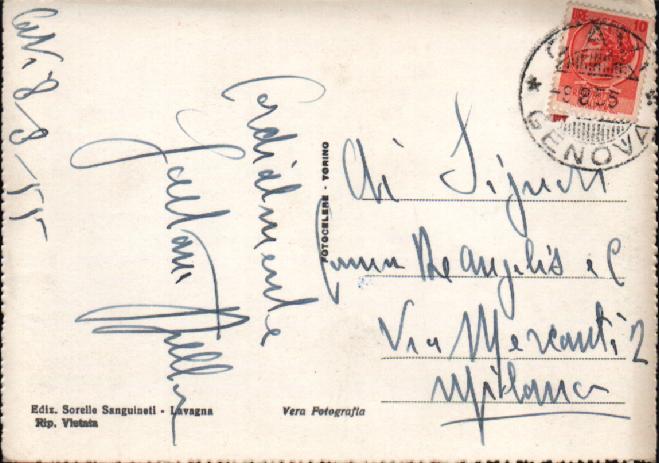 Cav. 8-8-55
Cordialmente
10
CAVI
-9.8.55
GENOVA
FOTOCELERE - TORINO
Ai Signori
De Angelis e C
Via Mercanti 2
Milano
Ediz. Sorelle Sanguineti - Lavagna
Rip. Vietata
Vera Fotografia